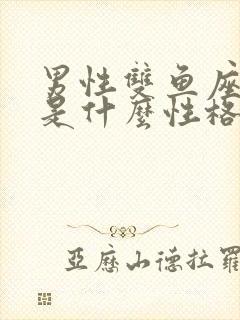 男性雙鱼座
是什麼性格
亞歷山德拉羅